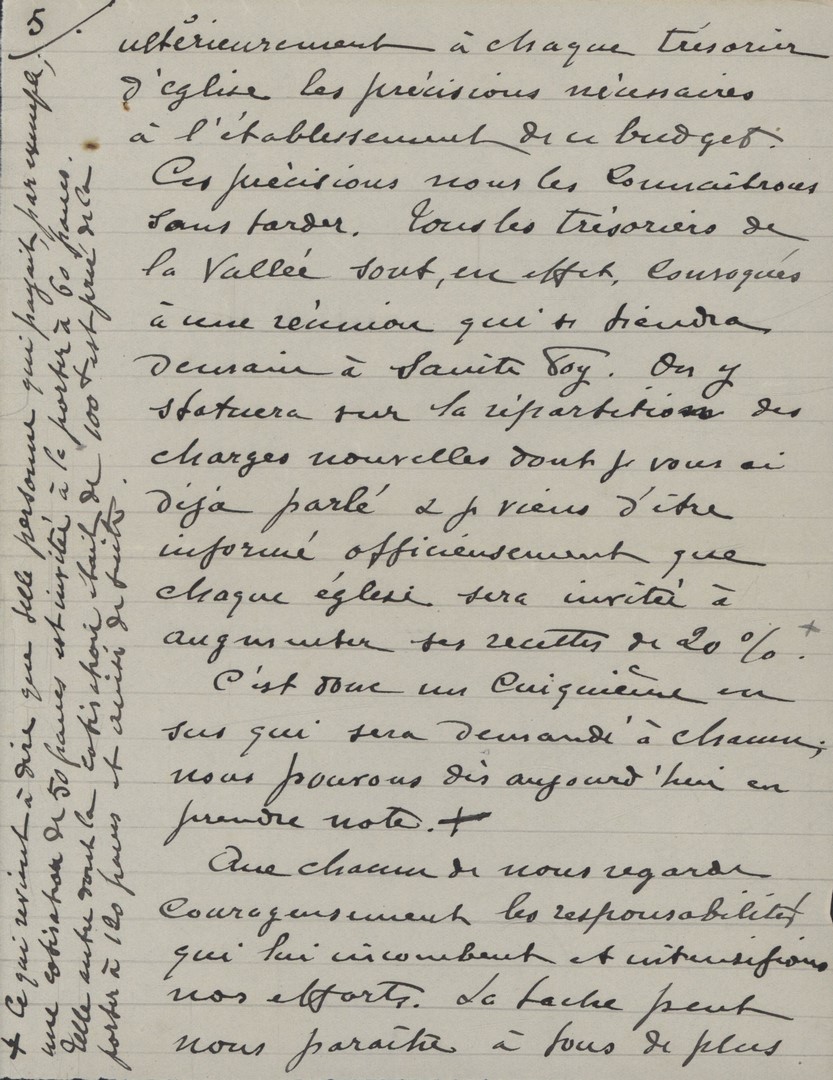 5
ultérieurement à chaque trésorier
d'église les précisions nécessaires
à l'établissement de ce budget.
Ces précisions nous les connaîtrons
sans tarder. Tous les trésoriers de
la Vallée sont, en effet, convoqués
à une réunion qui se tiendra
demain à Sainte Foy. On y
statuera sur la répartition des
charges nouvelles dont je vous ai
déjà parlé & je viens d'être
informé officieusement que
chaque église sera invitée à
augmenter ses recettes de 20 %. +
C'est donc un cinquième en
sus qui sera demandé à chacun;
nous pouvons dès aujourd'hui en
prendre note. +
Que chacun de nous regarde
courageusement les responsabilités
qui lui incombent et intensifions
nos efforts. La tache peut
nous paraître à tous de plus
+ Ce qui revient à dire que telle personne qui payait, par exemple,
une cotisation de 50 francs est invitée à la porter à 60 francs.
Telle autre dont la cotisation était de 100 f est prié de la
porter à 120 francs et ainsi de suite.